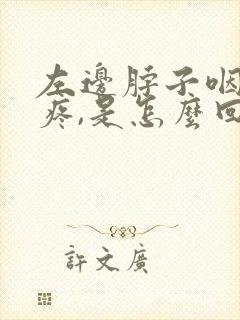 左邊脖子咽
疼,是怎麼回
許文廣